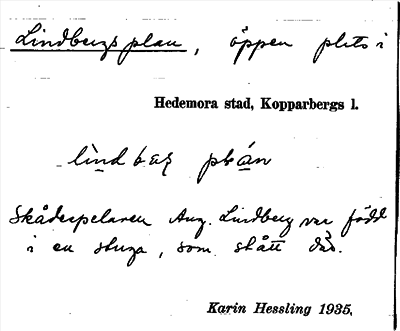 Lindbergs plan, öppen plats i
Hedemora stad, Kopparbergs l.
lìndbærj plán
Skådespelaren Aug. Lindberg var född
i en stuga, som stått där.
Karin Hessling 1935.